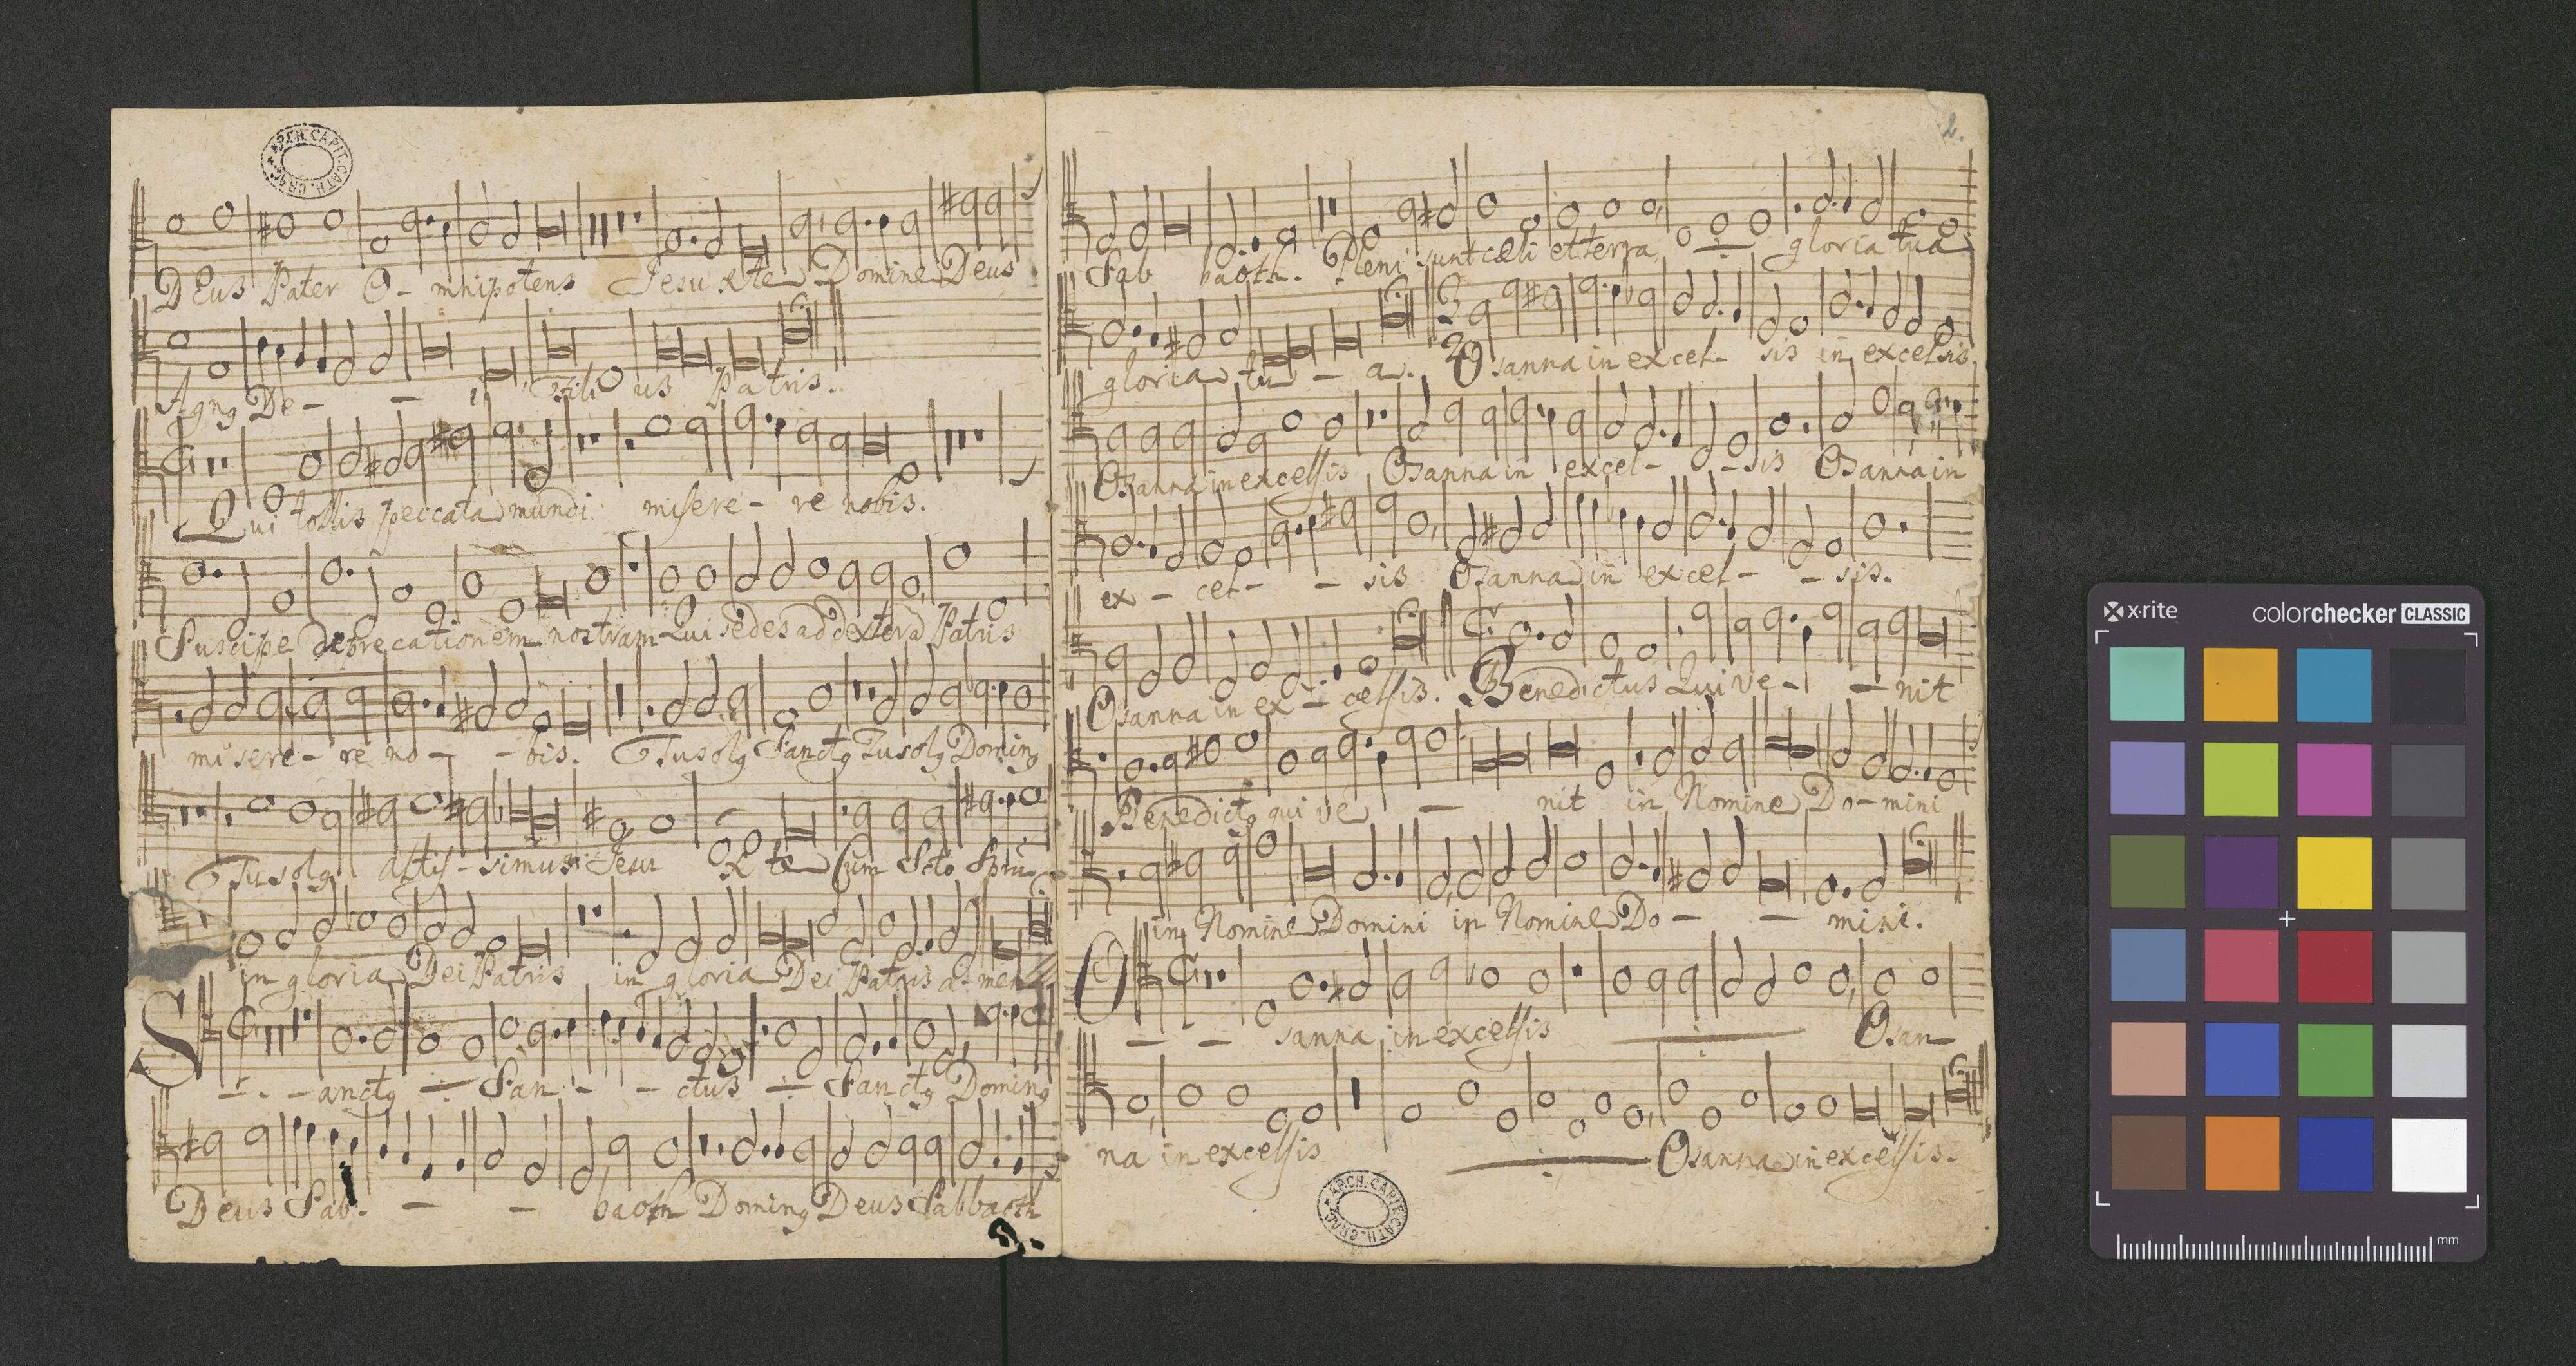 ARCH. CAPIT. CATH. CRAC.
DEus Pater O - mnipotens Jesu Xte Domine Deus
Agng De - - i, Fili us Patris.
Qui tollis peccata mundi misere - re nobis.
Suscipe deprecationem nostram Qui sedes ad dexterã Patris
misere - re no - - bis. Tu solg Sanctg Tu solg Doming
Tu solg altis - simus Jesu X te Cum Scto Spiru
in gloria Dei Patris in gloria Dei Patris a - men
S - - - anctg San - - ctus Sanctg Doming
Deus Sab - - - baoth Doming Deus Sabbaoth
2.
Sab baoth. Pleni sunt cæli et terra gloria tua
gloria tu - a. 3 2 Osanna in excel - sis in excelsis
Osanna in excelsis Osanna in excel - - sis Osanna in
ex - cel - - sis Osanna in excel - - sis.
Osanna in ex - celsis. Benedictus Qui ve - - nit
Benedictg qui ve - nit in Nomine Do - mini
in Nomine Domini in Nomine Do - - mini.
O - - sanna in excelsis Osan
na in excelsis Osanna in excelsis.
ARCH. CAPIT. CATH. CRAC.
x·rite colorchecker CLASSIC
mm